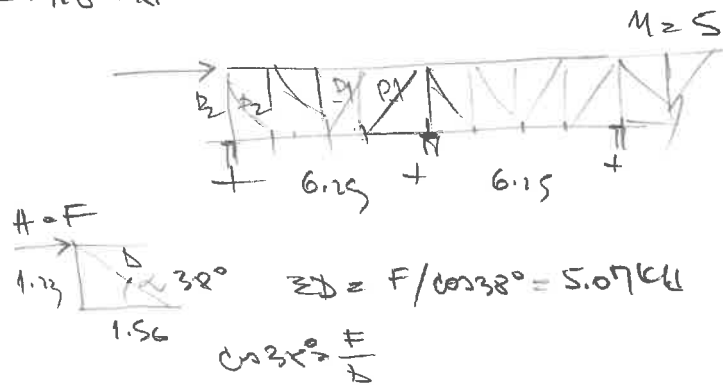 M = 5
D2 D2 D1 D1
+ 6.25 + 6.25 +
H = F
1.23 D α 38°
ΣD = F/cos38° = 5.07KN
1.56
cos38° = F/D